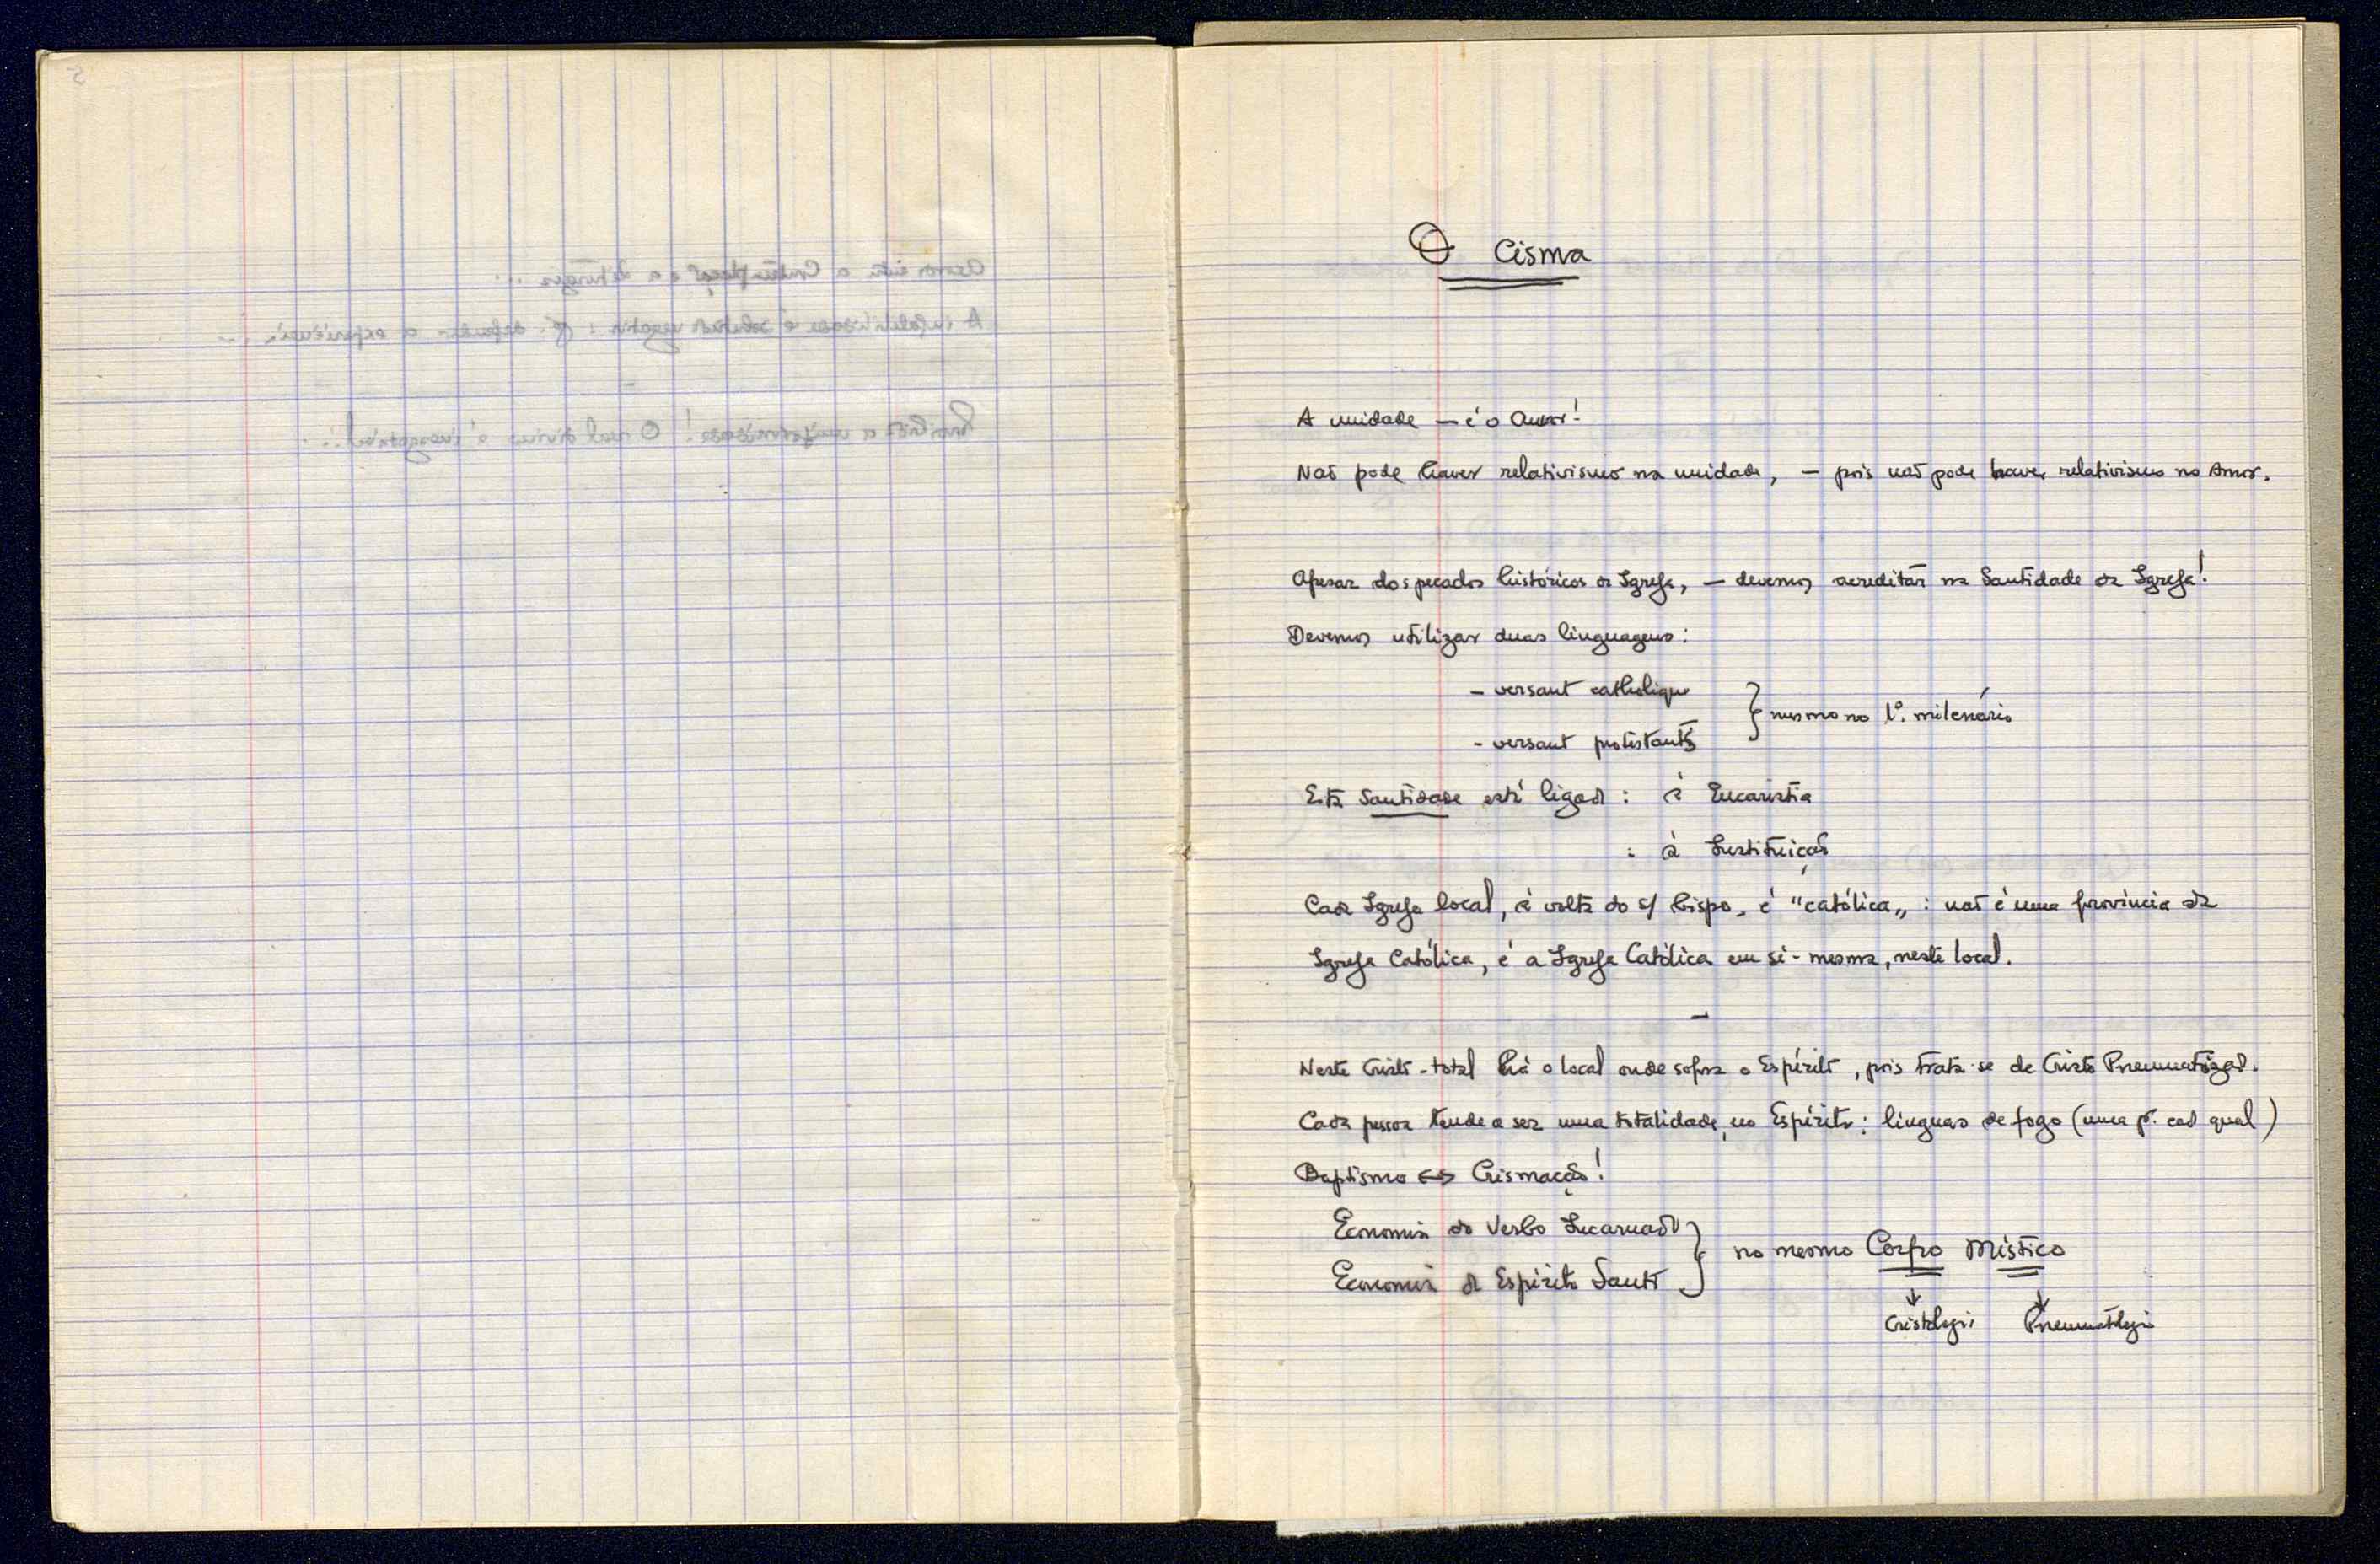 O Cisma
A unidade — é o Amor!
Não pode haver relativismo na unidade, — pois não pode haver relativismo no Amor.
Apesar dos pecados históricos da Igreja, — devemos acreditar na Santidade da Igreja!
Devemos utilizar duas linguagens:
- versant catholique
} mesmo no 1º. milenário
- versant protestante
Esta Santidade está ligada : à Eucaristia
: à Instituição
Cada Igreja local, à volta do s/ bispo, é "católica„ : não é uma província da
Igreja Católica, é a Igreja Católica em si-mesma, neste local.
—
Neste Cristo-total há o local onde sopra o Espírito, pois trata-se de Cristo Pneumatizado.
Cada pessoa tende a ser uma totalidade, no Espírito: línguas de fogo (uma p. cada qual)
Baptismo ↔ Crismação!
Economia do Verbo Incarnado
} no mesmo Corpo Místico
Economia do Espírito Santo
↓ ↓
Cristologia Pneumatologia